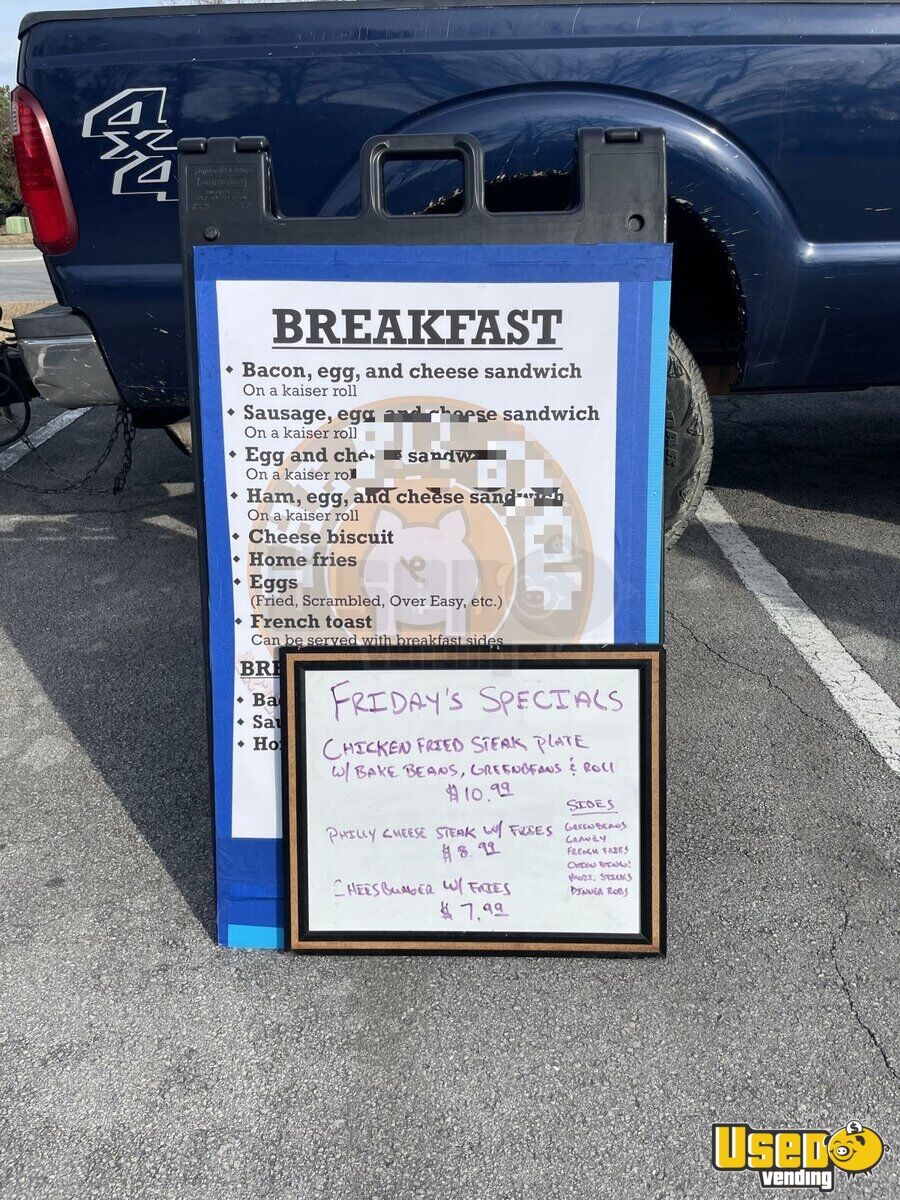 4x4
BREAKFAST
• Bacon, egg, and cheese sandwich
On a kaiser roll
• Sausage, egg and cheese sandwich
On a kaiser roll
• Egg and che sandw
On a kaiser rol
• Ham, egg, and cheese sandwich
On a kaiser roll
• Cheese biscuit
• Home fries
• Eggs
(Fried, Scrambled, Over Easy, etc.)
• French toast
Can be served with breakfast sides
BRE
• Ba
• Sau
• Ho
FRIDAY'S SPECIALS
CHICKEN FRIED STEAK PLATE
W/ BAKE BEANS, GREENBEANS & ROLL
$10.99
PHILLY CHEESE STEAK W/ FRIES
$8.99
CHEESBURGER W/ FRIES
$7.99
SIDES
GREENBEANS
GRAVEY
FRENCH FRIES
ONION RINGS
MOZZ. STICKS
DINNER ROLLS
USED
vending